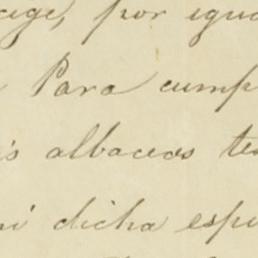 por igua
Para cump
albaceas tes
mi dicha espo